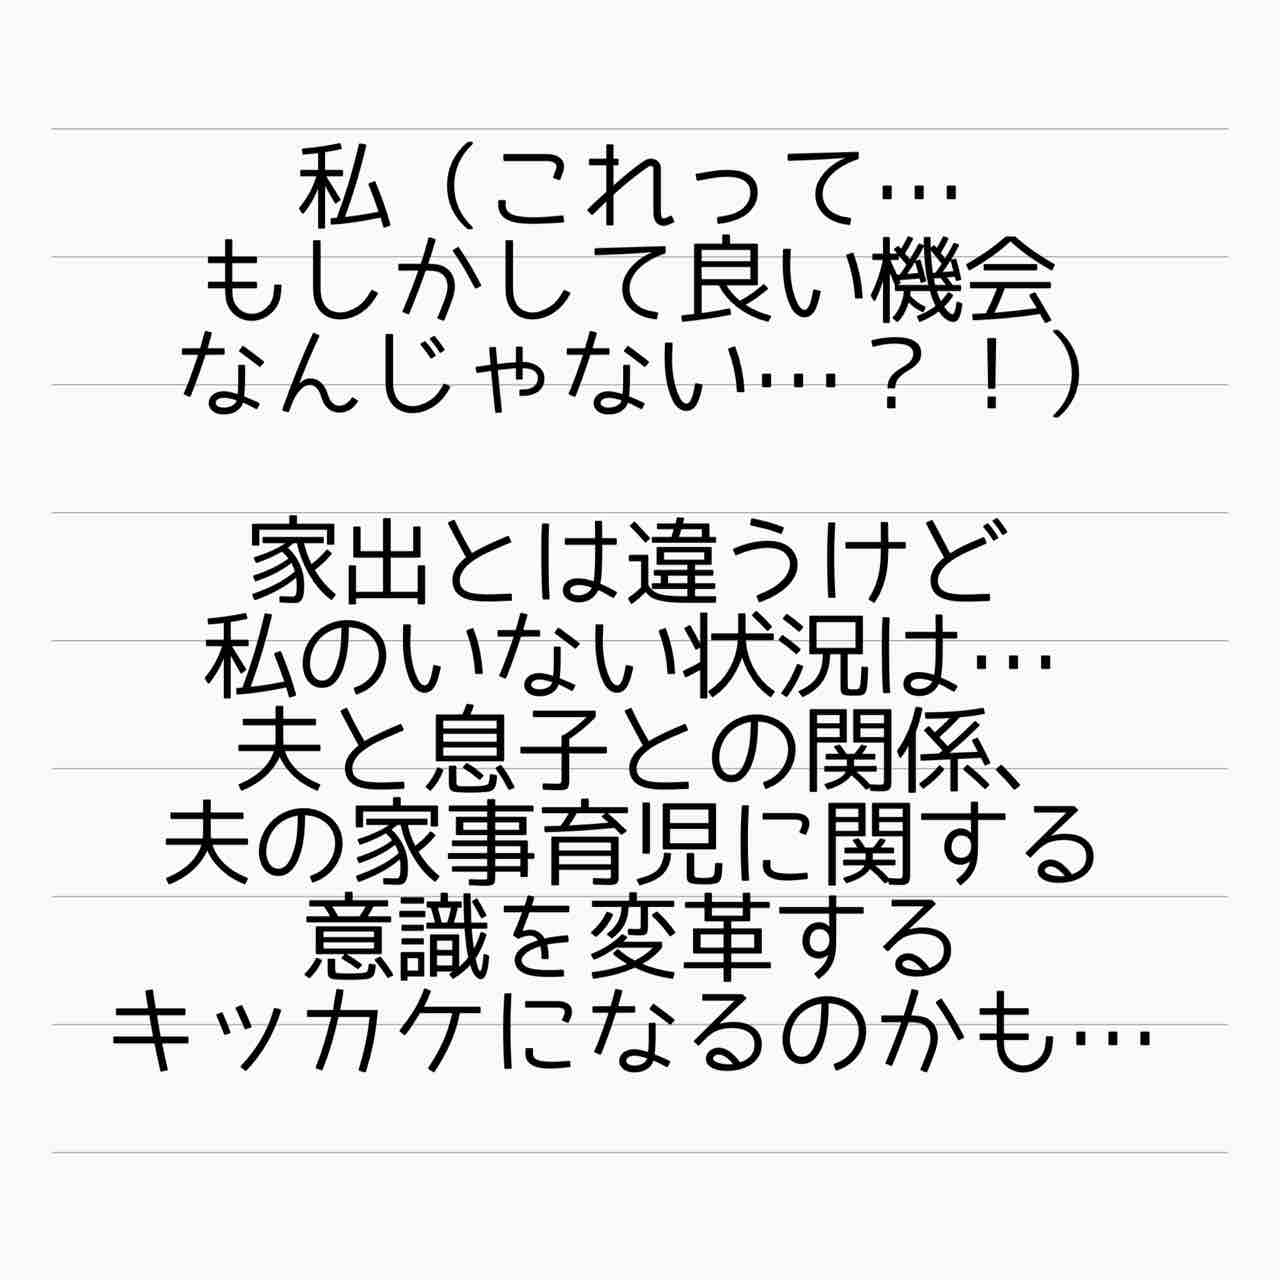 私（これって…
もしかして良い機会
なんじゃない…？！）
家出とは違うけど
私のいない状況は…
夫と息子との関係、
夫の家事育児に関する
意識を変革する
キッカケになるのかも…